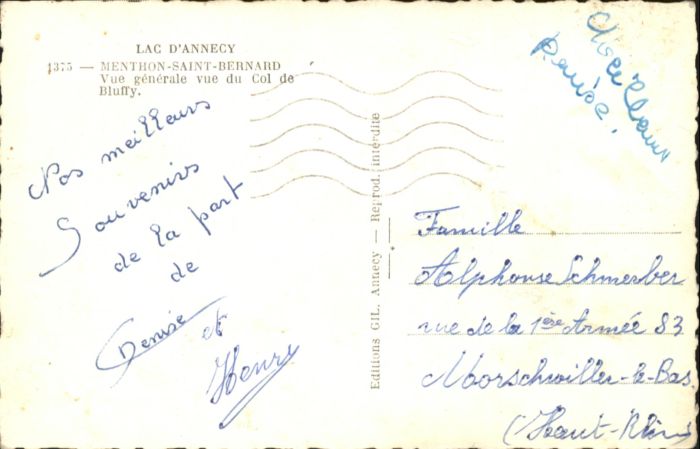 LAC D'ANNECY
1375 — MENTHON-SAINT-BERNARD
Vue générale vue du Col de
Bluffy.
Nos meilleurs
Souvenirs
de la part
de
Denise
et
Henry
Editions GIL. Annecy — Réprod. interdite
Denise.
Famille
Alphonse Schmerber
rue de la 1ère Armée 83
Morschwiller-le-Bas.
(Haut-Rhin)